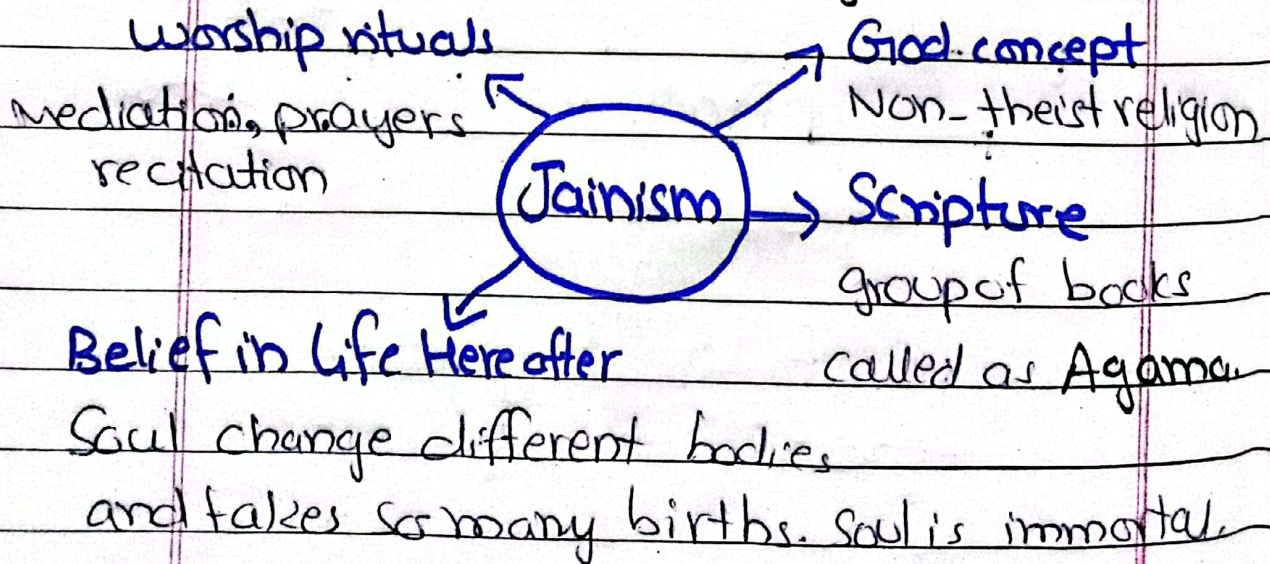 Worship rituals
Mediation, prayers
recitation
God concept
Non-theist religion
Jainism
Scripture
group of books
called as Agama.
Belief in Life Hereafter
Soul change different bodies
and takes so many births. Soul is immortal.